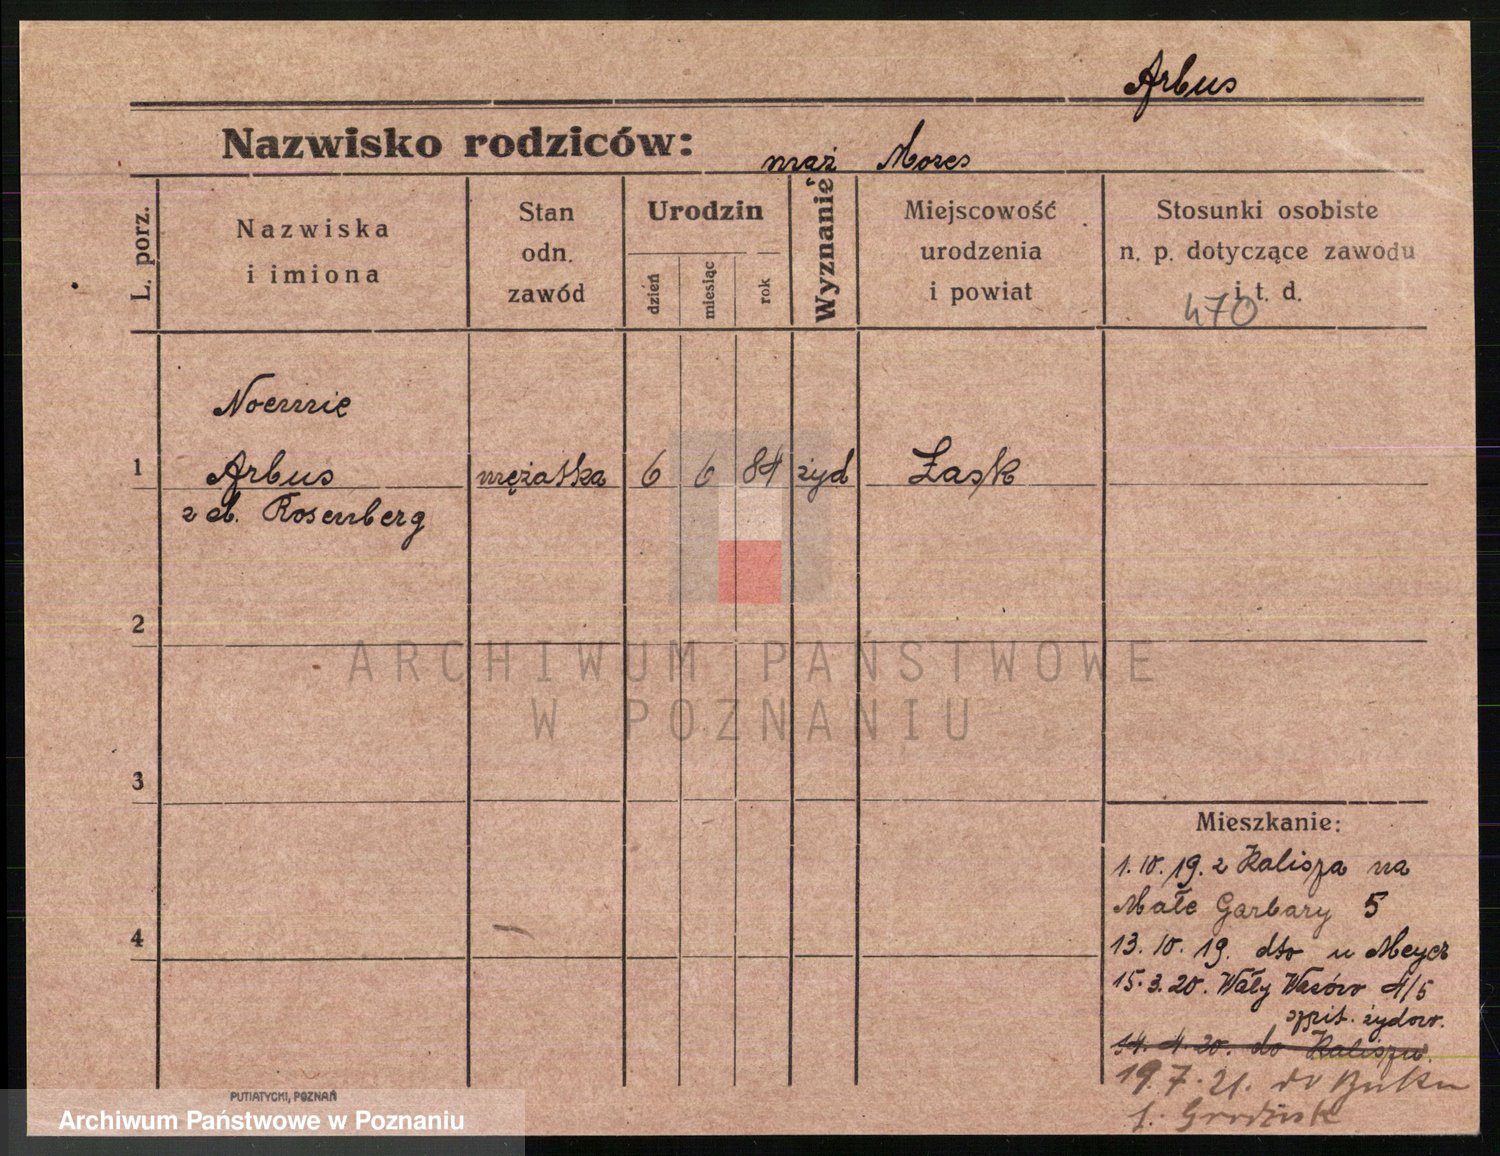 Arbus
Nazwisko rodziców: mąż Mores
L. porz.
Nazwiska
i imiona
Stan
odn.
zawód
Urodzin
dzień
miesiąc
rok
Wyznanie
Miejscowość
urodzenia
i powiat
Stosunki osobiste
n. p. dotyczące zawodu
i t. d.
470
Noemie
1 Arbus mężatka 6 6 84 żyd Łask
z d. Rosenberg
2
ARCHIWUM PAŃSTWOWE
W POZNANIU
3
Mieszkanie:
1.10.19. z Kalisza na
Małe Garbary 5
4
13.10.19. dto u Meyer
15.3.20. Wały Wazów 4/5
szpit. żydow.
14.4.20. do Kalisza.
19.7.21. do Buku
PUTIATYCKI, POZNAŃ
Archiwum Państwowe w Poznaniu